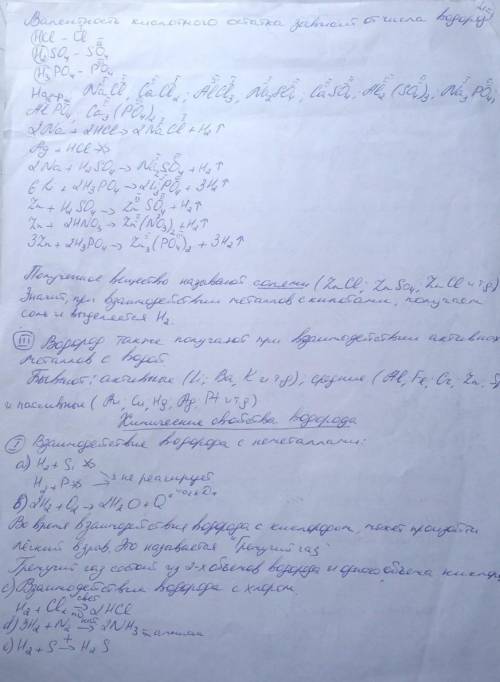 Валентность кислотного остатка зависит от числа водород
HCl – Cl
H₂SO₄ – SO₄
H₃PO₄ – PO₄
Напр. NaCl, CaCl₂; AlCl₃, Na₂SO₄; CaSO₄, Al₂(SO₄)₃, Na₃PO₄;
AlPO₄, Ca₃(PO₄)₂
2Na + 2HCl → 2NaCl + H₂↑
Ag + HCl ↛
2Na + H₂SO₄ → Na₂SO₄ + H₂↑
6Li + 2H₃PO₄ → 2Li₃PO₄ + 3H₂↑
Zn + H₂SO₄ → ZnSO₄ + H₂↑
Zn + 2HNO₃ → Zn(NO₃)₂ + H₂↑
3Zn + 2H₃PO₄ → Zn₃(PO₄)₂ + 3H₂↑
Полученное вещество называют солями (ZnCl; ZnSO₄, ZnCl и тд)
Значит, при взаимодействии металлов с кислотами, получает
соль и выделяется H₂.
III Водород также получают при взаимодействии активных
металлов с водой
Бывают: активные (Li; Ba, K и тд), средние (Al, Fe, Cr, Zn, S
и пассивные (Au, Cu, Hg, Ag, Pt и тд)
Химические свойства водорода
I Взаимодействие водорода с неметаллами:
a) H₂ + Si ↛
H₂ + P ↛ → не реагирует
b) 2H₂ + O₂ → 2H₂O + Q
Во время взаимодействия водорода с кислородом, может произойти
лёгкий взрыв. Это называется "Гремучий газ"
Гремучий газ собой из 2-х объёмов водорода и одного объёма кислор
c) Взаимодействие водорода с хлором.
H₂ + Cl₂ свет → 2HCl
d) 3H₂ + N₂ → 2NH₃
e) H₂ + S → H₂S